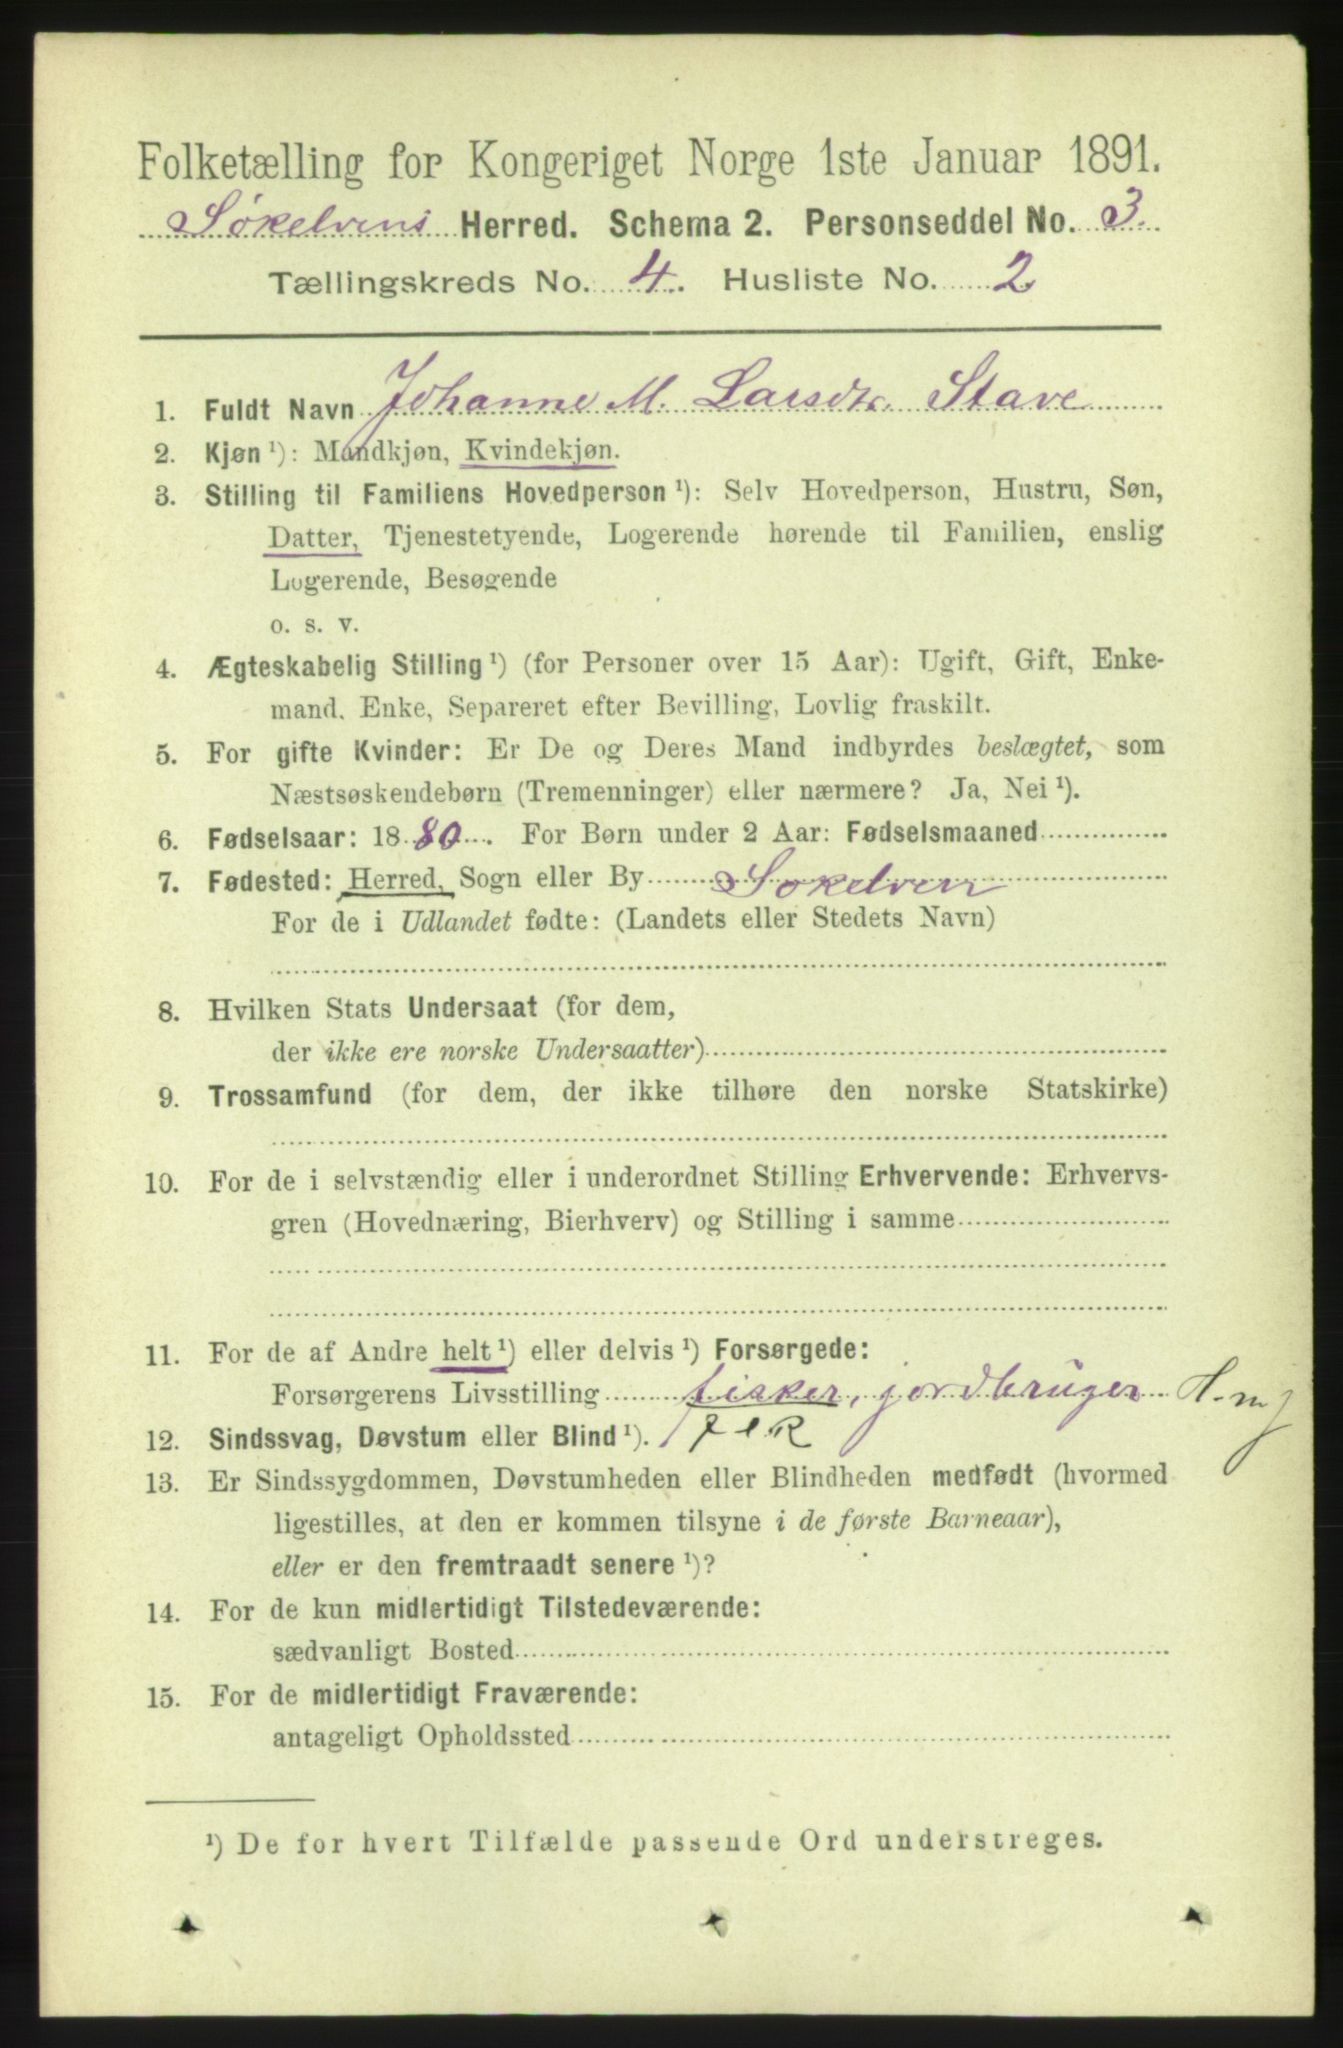 Folketælling for Kongeriget Norge 1ste Januar 1891.
Søkelvens Herred. Schema 2. Personseddel No. 3.
Tællingskreds No. 4. Husliste No. 2
1. Fuldt Navn Johanne M. Larsdtr. Stave
2. Kjøn ¹): Mandkjøn, Kvindekjøn.
3. Stilling til Familiens Hovedperson ¹): Selv Hovedperson, Hustru, Søn,
Datter, Tjenestetyende, Logerende hørende til Familien, enslig
Logerende, Besøgende
o. s. v.
4. Ægteskabelig Stilling ¹) (for Personer over 15 Aar): Ugift, Gift, Enke-
mand, Enke, Separeret efter Bevilling, Lovlig fraskilt.
5. For gifte Kvinder: Er De og Deres Mand indbyrdes beslægtet, som
Næstsøskendebørn (Tremenninger) eller nærmere? Ja, Nei ¹).
6. Fødselsaar: 1880. For Børn under 2 Aar: Fødselsmaaned
7. Fødested: Herred, Sogn eller By Søkelven
For de i Udlandet fødte: (Landets eller Stedets Navn)
8. Hvilken Stats Undersaat (for dem,
der ikke ere norske Undersaatter)
9. Trossamfund (for dem, der ikke tilhøre den norske Statskirke)
10. For de i selvstændig eller i underordnet Stilling Erhvervende: Erhvervs-
gren (Hovednæring, Bierhverv) og Stilling i samme
11. For de af Andre helt ¹) eller delvis ¹) Forsørgede:
Forsørgerens Livsstilling fisker, jordbruger
12. Sindssvag, Døvstum eller Blind ¹).
13. Er Sindssygdommen, Døvstumheden eller Blindheden medfødt (hvormed
ligestilles, at den er kommen tilsyne i de første Barneaar),
eller er den fremtraadt senere ¹)?
14. For de kun midlertidigt Tilstedeværende:
sædvanligt Bosted
15. For de midlertidigt Fraværende:
antageligt Opholdssted
¹) De for hvert Tilfælde passende Ord understreges.